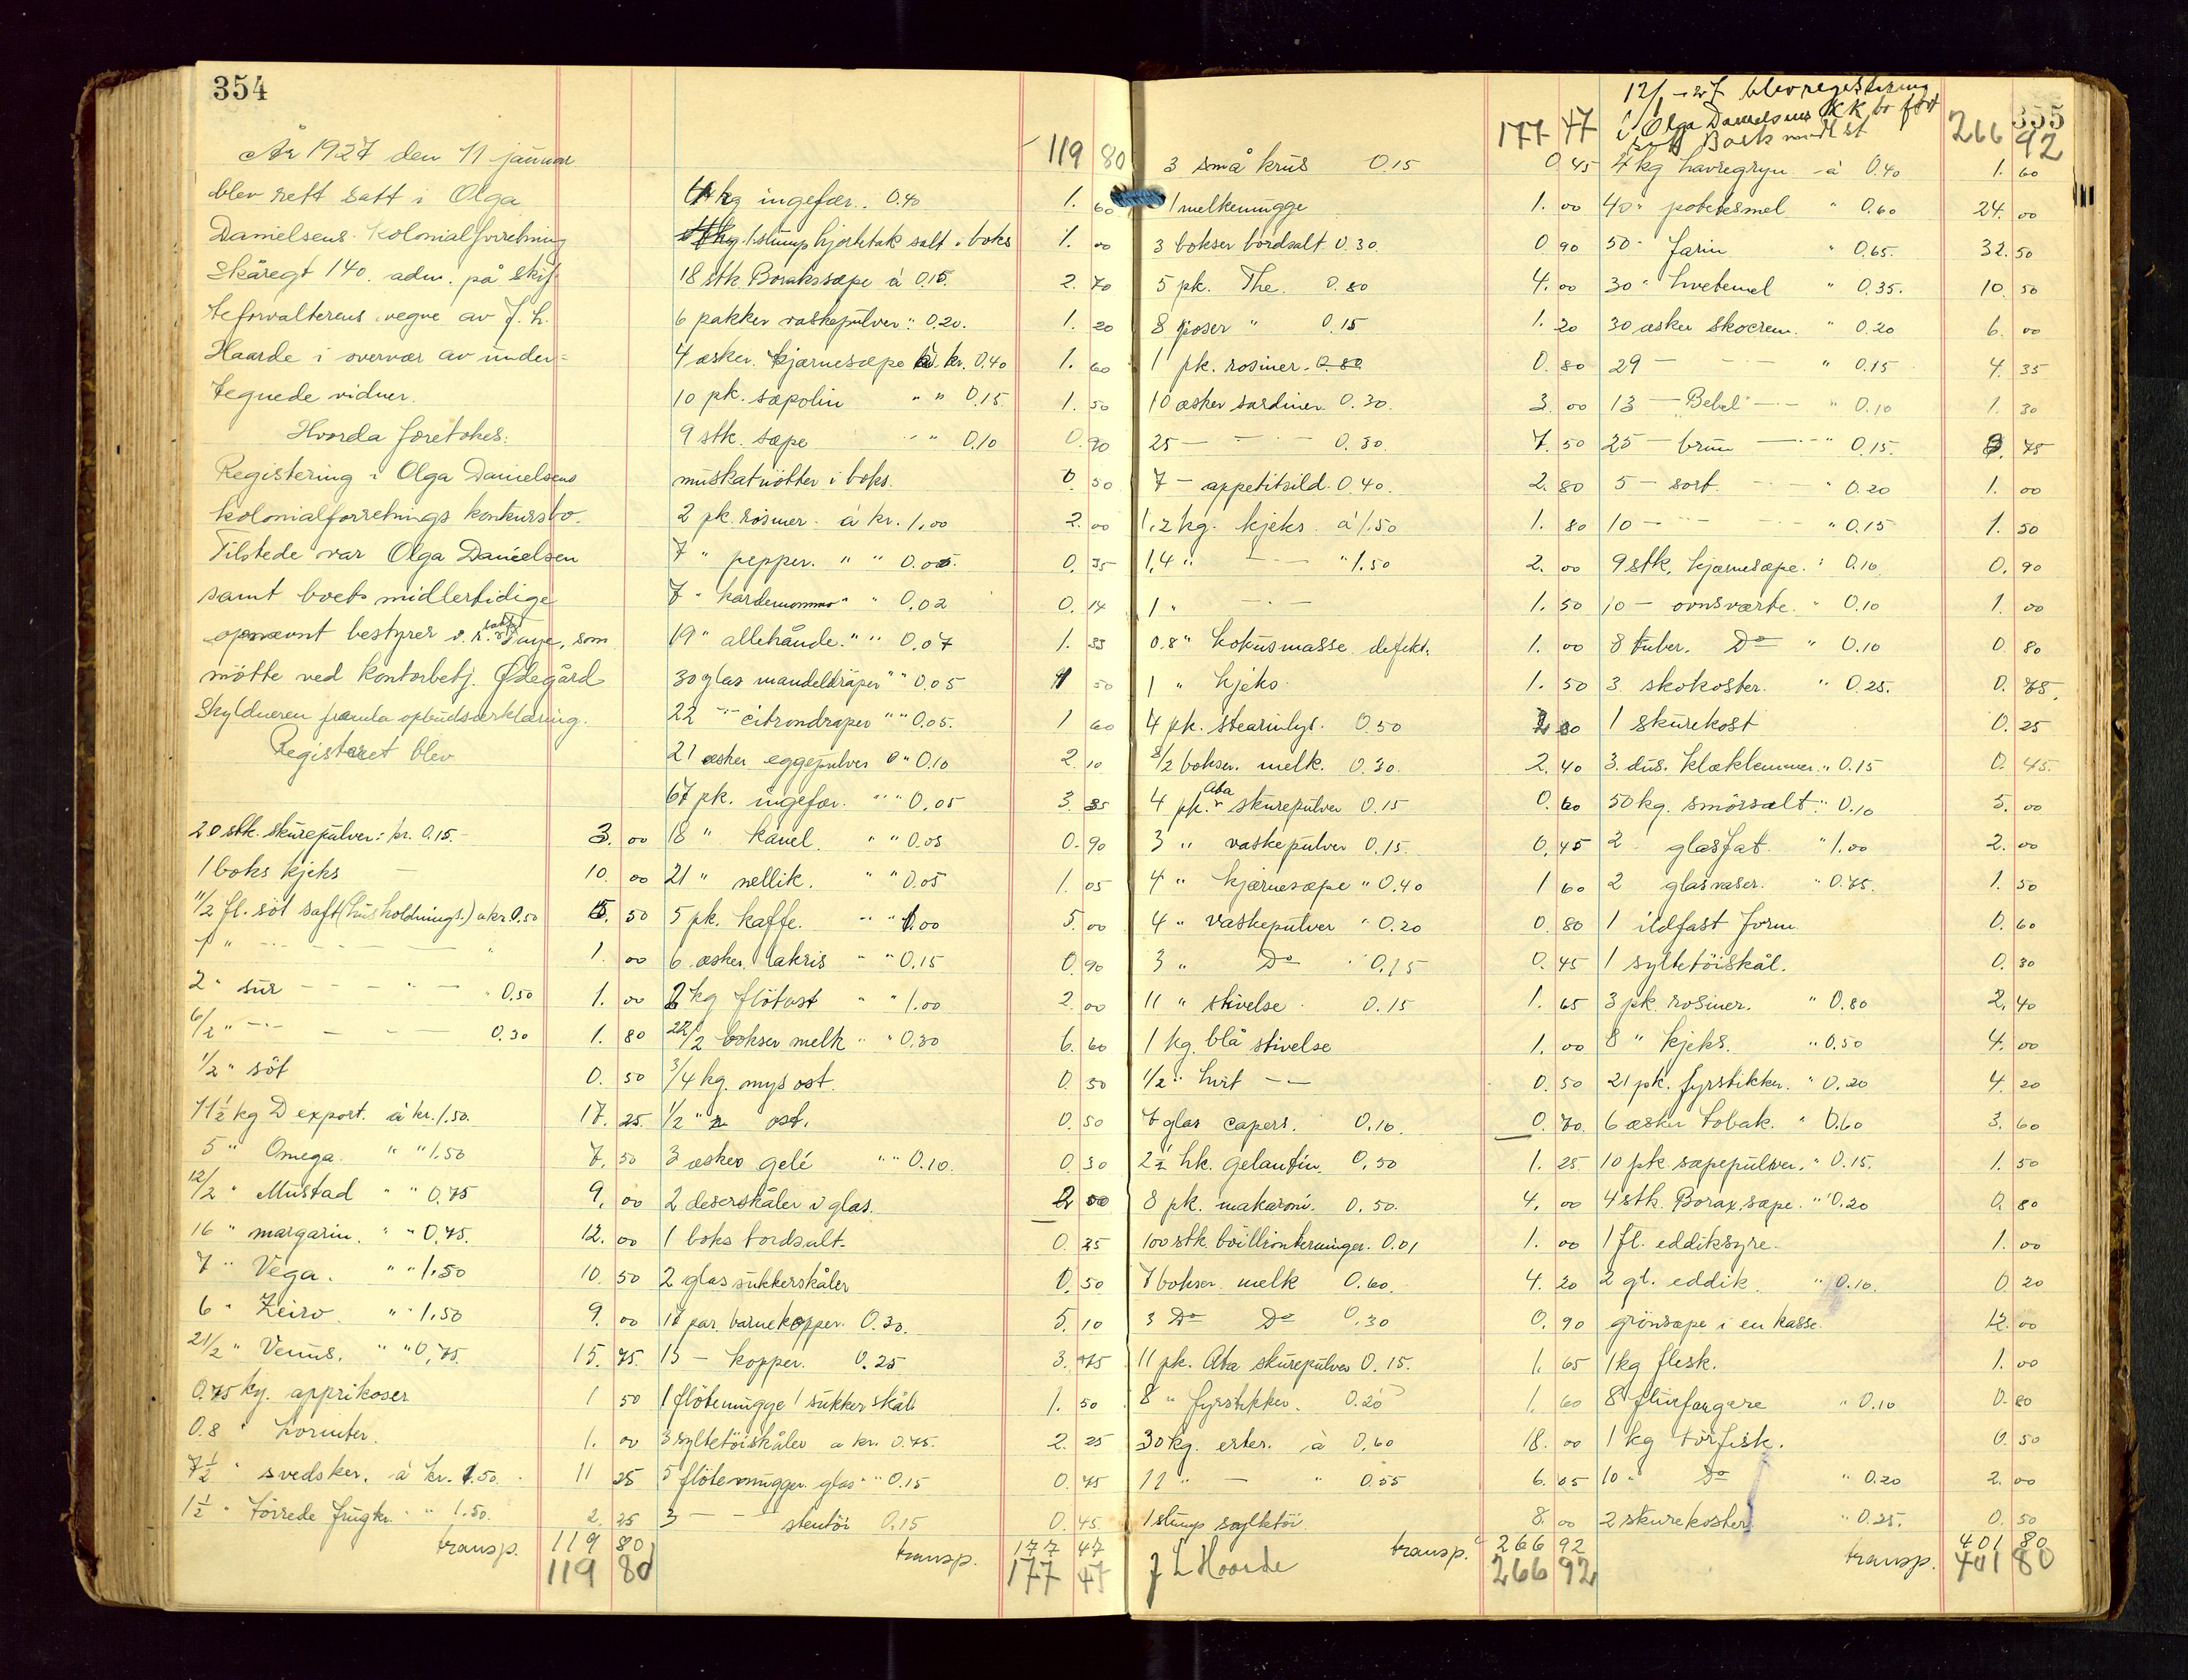 354
År 1927 den 11 januar
blev rett satt i Olga
Danielsens Kolonialforretning
Skåregt 140. adm. på skif
teforvalterens vegne av J. L.
Haarde i overvær av under=
tegnede vidner.
Hvorda foretokes:
Registering i Olga Danielsens
kolonialforretnings konkursbo.
Tilstede var Olga Danielsen
samt boets midlertidige
opnævnt bestyrer o.r.sakf. som
mötte ved kontorbetj. Ödegård
Skyldneren framla opbudserklæring.
Registeret blev
20 stk. skurepulver: kr. 0.15.- 3.00
1 boks kjeks — 10.00
11/2 fl. söt saft (husholdnings.) a kr 0.50 5.50
1 " - - - - - " 1.00
2 " sur - - - " - " 0.50 1.00
6/2 " - - - - - 0.30 1.80
1/2 " söt 0.50
11½ kg D export. á kr. 1.50. 17.25
5 " Omega. " " 1.50 7.50
12/2 " Mustad " " 0.75 9.00
16 " margarin. " " 0.75. 12.00
7 " Vega. " " 1.50 10.50
6 " Zeiro " " 1.50 9.00
21/2 " Venus. " " 0.75. 15.75
0.75 kg. apprikoser 1 50
0.8 " korinter. 1.00
7½ " svedsker. á kr. 1.50. 11 25
1½ " törrede frugter " " 1.50. 2.25
transp. 119 80
119 80
119 80
4 kg ingefær. 0.40 1.60
1 stump hjortetak salt i boks 1.00
18 stk. Borakssæpe á 0.15. 2.70
6 pakker vaskepulver " 0.20. 1.20
4 æsker. kjærnesæpe á kr. 0.40 1.60
10 pk. sæpolin " " 0.15. 1.50
9 stk. sæpe " " 0.10 0.90
muskatnötter i boks. 0.50
2 pk. rosiner. á kr. 1.00 2.00
7 " pepper. " " 0.05. 0.35
7 " kardemomme " " 0.02 0.14
19 " allehånde. " " 0.07 1.33
30 glas mandeldråper " " 0.05 1 50
22 " citrondraper " " 0.05. 1 60
21 æsker eggepulver " " 0.10 2.10
67 pk. ingefær. " " 0.05 3.35
18 " kanel. " " 0.05 0.90
21 " nellik. " " 0.05 1.05
5 pk. kaffe. " " 1.00 5.00
6 æsker lakris " " 0.15 0.90
2 kg flötost " " 1.00 2.00
22/2 bokser melk " " 0.30 6.60
3/4 kg. mysost. 0.50
1/2 " ost. 0.50
3 æsker gelé " " 0.10. 0.30
2 deserskåler i glas. 2 00
1 boks bordsalt. 0.25
2 glas sukkerskåler 0.50
17 par barnekopper. 0.30. 5.10
15 — kopper. 0.25 3.75
1 flötemugge 1 sukkerskål 1.50
3 syltetöiskåler a kr. 0.75. 2.25
5 flötemugger glas " " 0.15 0.75
3 — — stentöi 0.15 0.45
transp. 177 47
177 47
177 47
3 små krus 0.15 0.45
1 melkemugge 1.00
3 bokser bordsalt 0.30. 0.90
5 pk. The. 0.80 4.00
8 poser " 0.15 1.20
1 pk. rosiner. 0.80 0.80
10 æsker sardiner 0.30. 3.00
25 — - - 0.30. 7.50
7 — appetitsild. 0.40. 2.80
1.2 kg. kjeks á 1.50 1.80
1,4 " — " 1.50 2.00
1 " - - 1.50
0.8 " kokusmasse defekt. 1.00
1 " kjeks 1.50
4 pk. stearinlys. 0.50 2 00
8/2 bokser. melk. 0.30. 2.40
4 pk. Aba skurepulver 0.15 0.60
3 " vaskepulver 0.15. 0.45
4 " kjærnesæpe " 0.40 1 60
4 " vaskepulver " 0.20 0.80
3 " Do " 0.15 0.45
11 " stivelse 0.15 1.65
1 kg. blå stivelse 1.00
1/2 " hvit — 0.50
7 glas capers. 0.10. 0.70
2½ hk. gelantin. 0.50 1.25
8 pk. makaroni. 0.50. 4.00
100 stk. boillionterninger. 0.01 1.00
7 bokser melk 0.60. 4.20
3 Do Do 0.30 0.90
11 pk. Aba skurepulver 0.15. 1.65
8 " fyrstikker. 0.20 1.60
30 kg. erter. á 0.60 18.00
11 " — " 0.55 6.05
1 stump syltetöi 8.00
transp. 266 92
J L Haarde 266 92
355
12/1 - 27 blev registering
i Olga Danielsens KK bo fört
266 92
4 kg havregryn á 0.40 1.60
40 " potetesmel " 0.60 24.00
50 " farin " 0.65. 32.50
30 " hvetemel " 0.35. 10.50
30 æsker skocrem. " 0.20 6.00
29 — - - " 0.15 4.35
13 — Bebel - - " 0.10 1.30
25 — brun — - " 0.15. 3.75
5 — sort. - - " 0.20 1.00
10 — - - " 0.15 1.50
9 stk. kjærnesæpe. " 0.10. 0.90
10 — ovnsværte. " 0.10 1.00
8 tuber. Do " 0.10 0.80
3. skokoster. " 0.25. 0.75.
1 skurekost 0.25
3. dus. klæklemmer. " 0.15 0.45.
50 kg. smörsalt " 0.10 5.00
2 glasfat. " 1.00 2.00
2 glasvaser. " 0.75. 1.50
1 ildfast form 0.60
1 syltetöiskål. 0.30
3 pk. rosiner. " 0.80 2.40
8 " kjeks. " 0.50 4.00
21 pk. fyrstikker. " 0.20 4.20
6 æsker tobak. " 0.60 3.60
10 pk. sæpepulver. " 0.15. 1.50
4 stk. Borax sæpe. " 0.20 0.80
1 fl. eddiksyre. 1.00
2 gl. eddik. " 0.10. 0.20
grönsæpe i en kasse. 12.00
1 kg flesk. 1.00
8 fluefangere " 0.10 0.80
1 kg törfisk. 0.50
10 " Do " 0.20 2.00
2 skurekoster " 0.25. 0.50
transp. 401 80
401 80